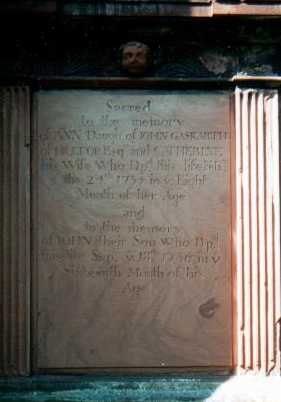 Sacred
to the memory
of ANN Daugh. of JOHN GASKARTH
of HILLTOP Esqr. and CATHERINE
his Wife Who Dp.d this life
the 2d 1735 in ye Eight
Month of her Age
and
to the memory
of JOHN their Son Who Dp.d
this life Sep. ye in ye
Sixteenth Month of his
Age